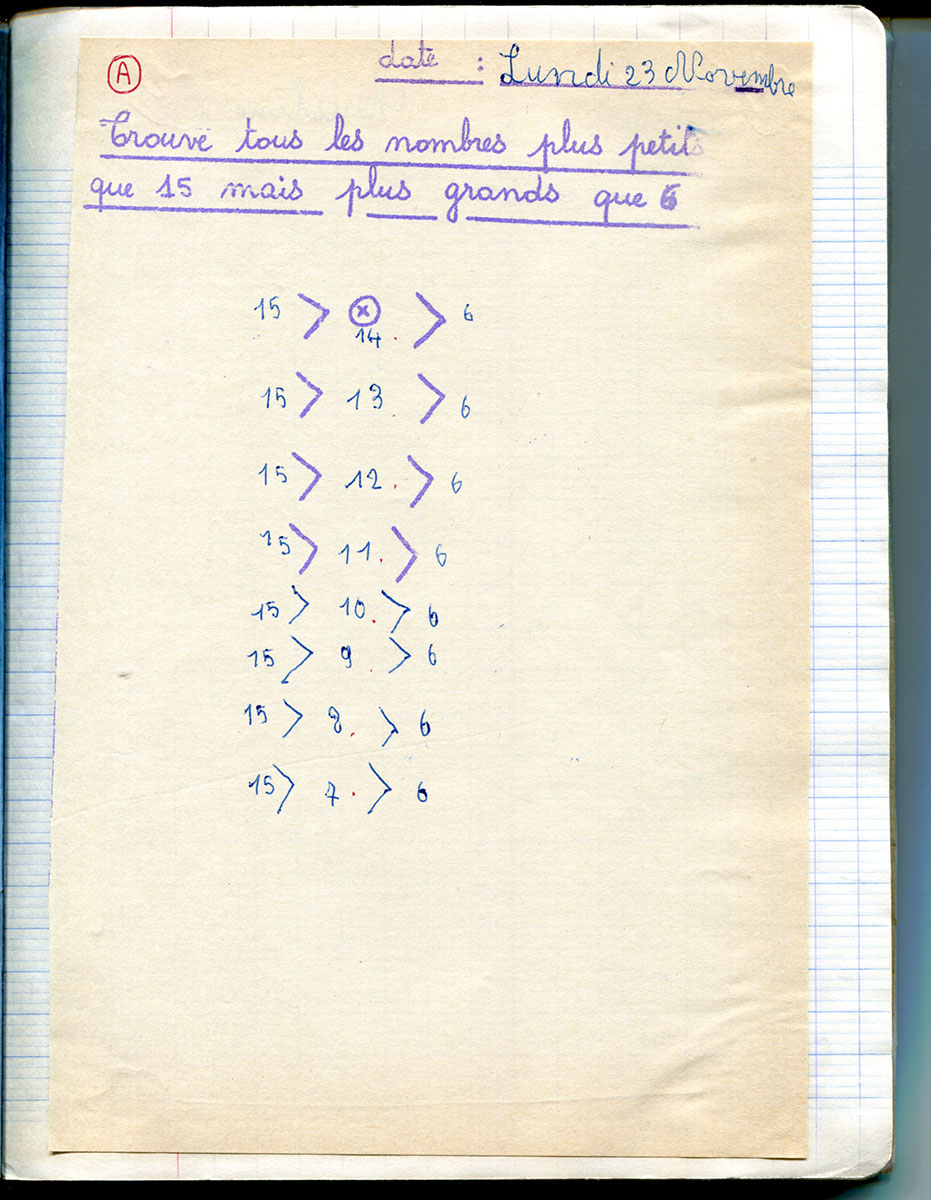 A
date : Lundi 23 Novembre
Trouve tous les nombres plus petits
que 15 mais plus grands que 6
15 > x > 6
14.
15 > 13. > 6
15 > 12. > 6
15 > 11. > 6
15 > 10. > 6
15 > 9. > 6
15 > 8. > 6
15 > 7. > 6